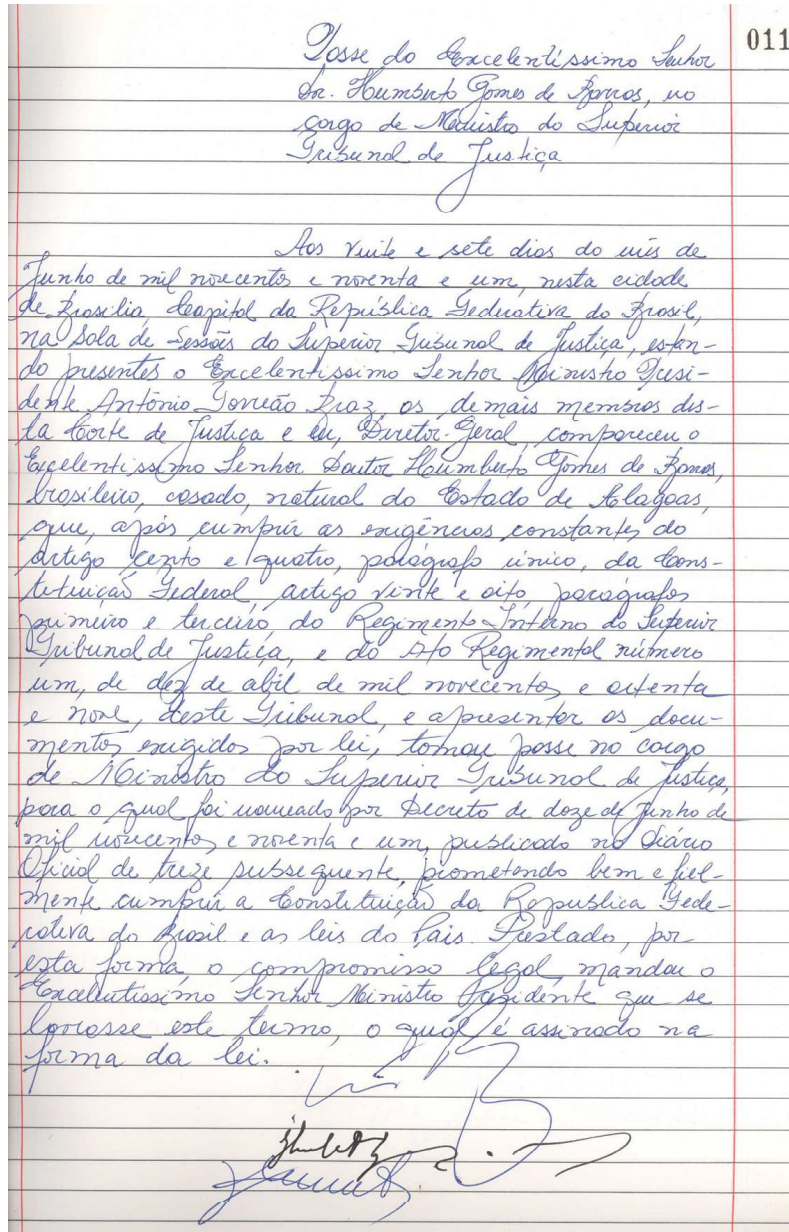 011
Posse do Excelentíssimo Senhor
Dr. Humberto Gomes de Barros, no
cargo de Ministro do Superior
Tribunal de Justiça
Aos vinte e sete dias do mês de
Junho de mil novecentos e noventa e um, nesta cidade
de Brasília, Capital da República Federativa do Brasil,
na Sala de Sessões do Superior Tribunal de Justiça, estan-
do presentes o Excelentíssimo Senhor Ministro Presi-
dente Antônio Torreão Braz, os demais membros des-
ta Corte de Justiça e eu, Diretor-Geral, compareceu o
Excelentíssimo Senhor Doutor Humberto Gomes de Barros,
brasileiro, casado, natural do Estado de Alagoas,
que, após cumprir as exigências constantes do
artigo cento e quatro, parágrafo único, da Cons-
tituição Federal, artigo vinte e oito, parágrafos
primeiro e terceiro, do Regimento Interno do Superior
Tribunal de Justiça, e do Ato Regimental número
um, de dez de abril de mil novecentos e oitenta
e nove, deste Tribunal, e apresentar os docu-
mentos exigidos por lei, tomou posse no cargo
de Ministro do Superior Tribunal de Justiça,
para o qual foi nomeado por Decreto de doze de Junho de
mil novecentos e noventa e um, publicado no Diário
Oficial de treze subsequente, prometendo bem e fiel-
mente cumprir a Constituição da República Fede-
rativa do Brasil e as leis do País. Prestado, por
esta forma, o compromisso legal, mandou o
Excelentíssimo Senhor Ministro Presidente que se
lavrasse este termo, o qual é assinado na
forma da lei.